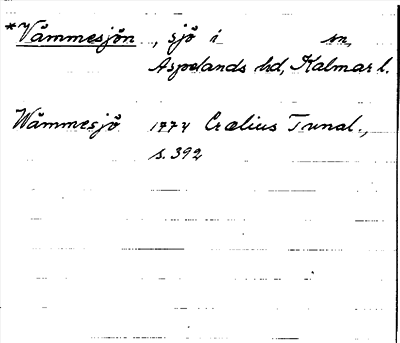 *Vämmesjön, sjö i sn,
Aspelands hd, Kalmar l.
Wämmesjö 1774 Crælius Tunal.,
s. 392